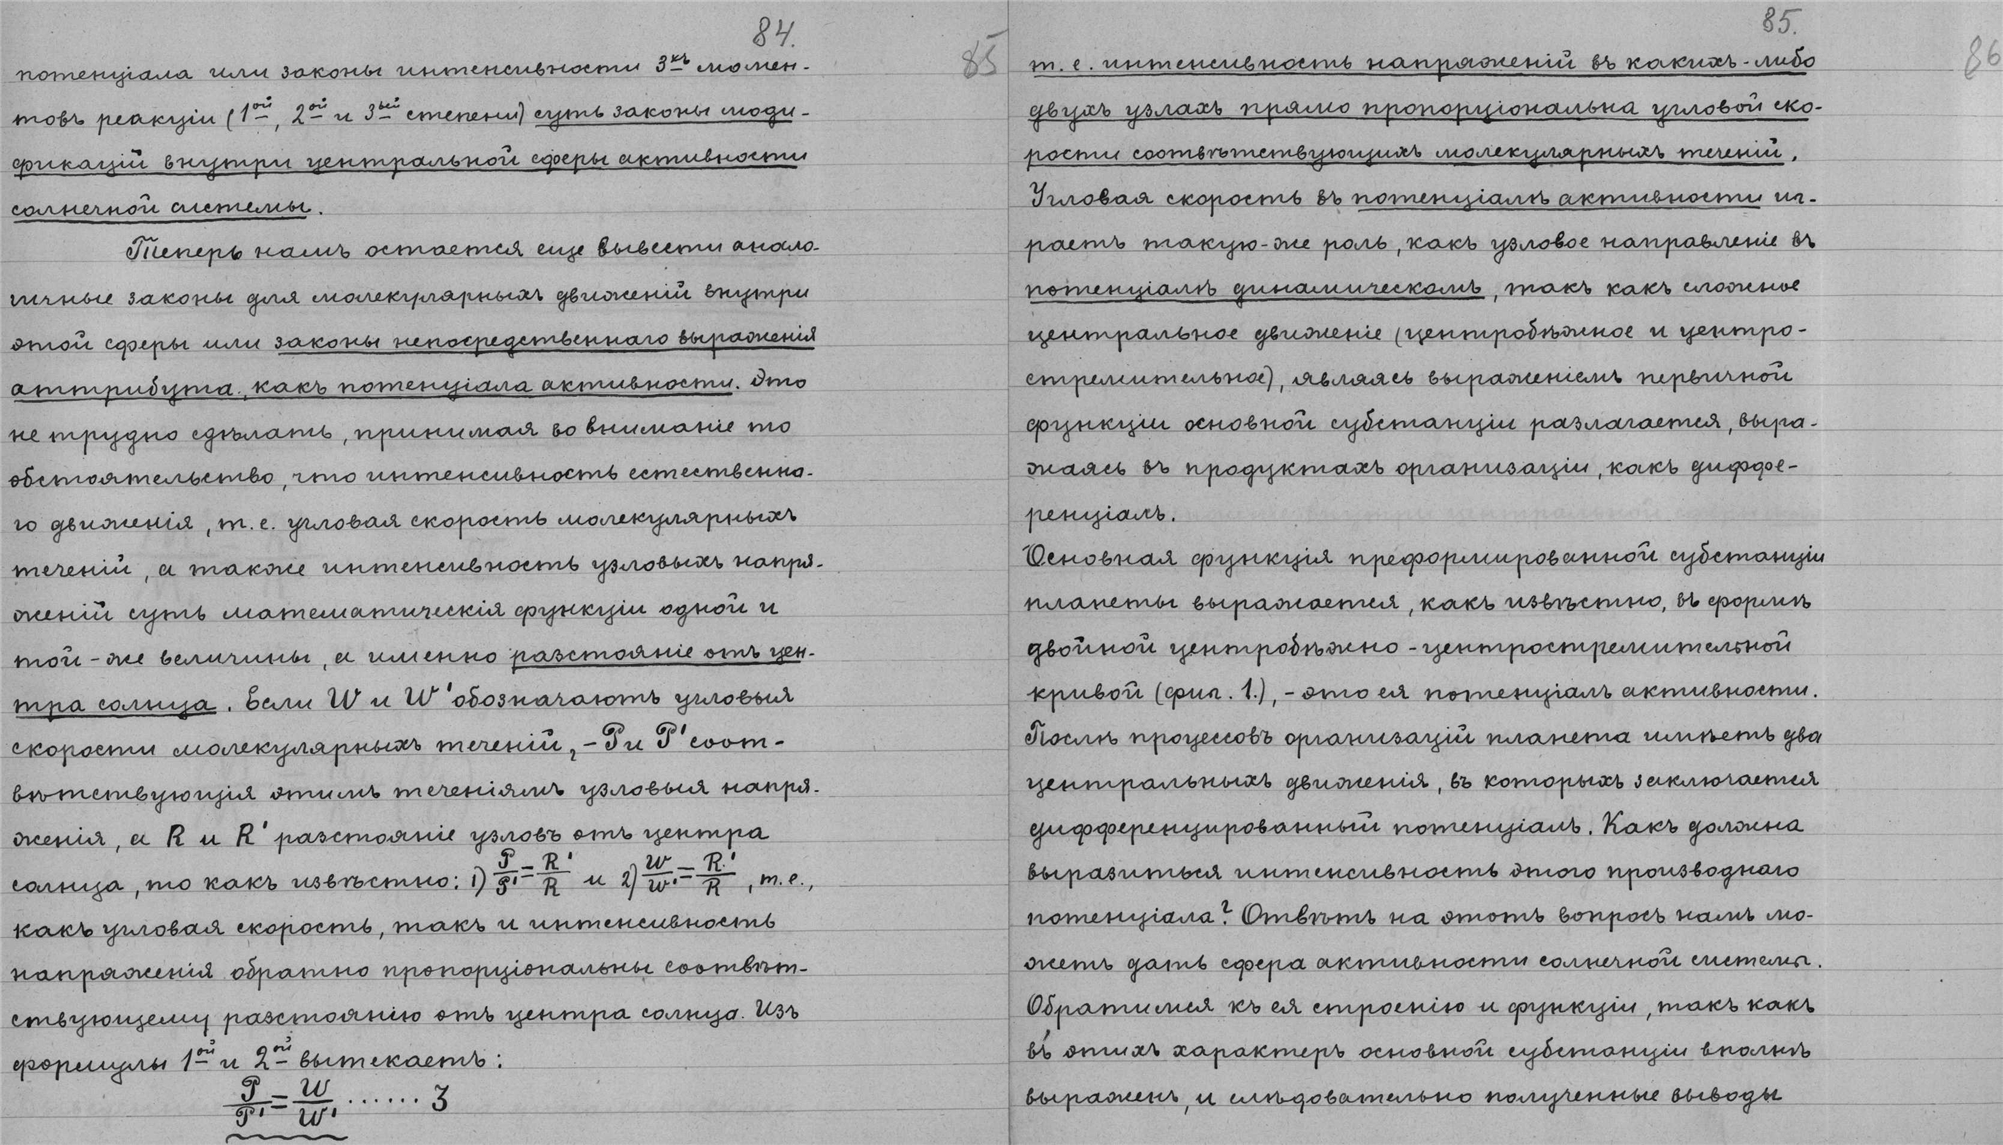 84.
85
потенціала или законы интенсивности 3хъ момен-
товъ реакціи (1ой, 2ой и 3ьей степени) суть законы моди-
фикацій внутри центральной сферы активности
солнечной системы.
Теперь намъ остается еще вывести анало-
гичные законы для молекулярныхъ движеній внутри
этой сферы или законы непосредственнаго выраженія
аттрибута, какъ потенціала активности. Это
не трудно сдѣлать, принимая во вниманіе то
обстоятельство, что интенсивность естественна-
го движенія, т.е. угловая скорость молекулярныхъ
теченій, а также интенсивность узловыхъ напря-
женій суть математическія функціи одной и
той-же величины, а именно разстояніе отъ цен-
тра солнца. Если W и W' обозначаютъ угловыя
скорости молекулярныхъ теченій, - P и P' соот-
вѣтствующія этимъ теченіямъ узловыя напря-
женія, а R и R' разстояніе узловъ отъ центра
солнца, то какъ извѣстно: 1) P/P' = R'/R и 2) W/W' = R'/R, т.е.,
какъ угловая скорость, такъ и интенсивность
напряженія обратно пропорціональны соотвѣт-
ствующему разстоянію отъ центра солнца. Изъ
формулы 1ой и 2ой вытекаетъ:
P/P' = W/W' ...... 3
85.
86
т.е. интенсивность напряженій въ какихъ-либо
двухъ узлахъ прямо пропорціональна угловой ско-
рости соотвѣтствующихъ молекулярныхъ теченій.
Угловая скорость въ потенціалѣ активности иг-
раетъ такую-же роль, какъ узловое направленіе въ
потенціалѣ динамическомъ, такъ какъ сложное
центральное движеніе (центробѣжное и центро-
стремительное), являясь выраженіемъ первичной
функціи основной субстанціи разлагается, выра-
жаясь въ продуктахъ организаціи, какъ диффе-
ренціалъ.
Основная функція преформированной субстанціи
планеты выражается, какъ извѣстно, въ формѣ
двойной центробѣжно-центростремительной
кривой (фиг. 1.), - это ея потенціалъ активности.
Послѣ процессовъ организацій планета имѣетъ два
центральныхъ движенія, въ которыхъ заключается
дифференцированный потенціалъ. Какъ должна
выразиться интенсивность этого производнаго
потенціала? Отвѣтъ на этотъ вопросъ намъ мо-
жетъ дать сфера активности солнечной системы.
Обратимся къ ея строенію и функціи, такъ какъ
въ этихъ характеръ основной субстанціи вполнѣ
выраженъ, и слѣдовательно полученные выводы